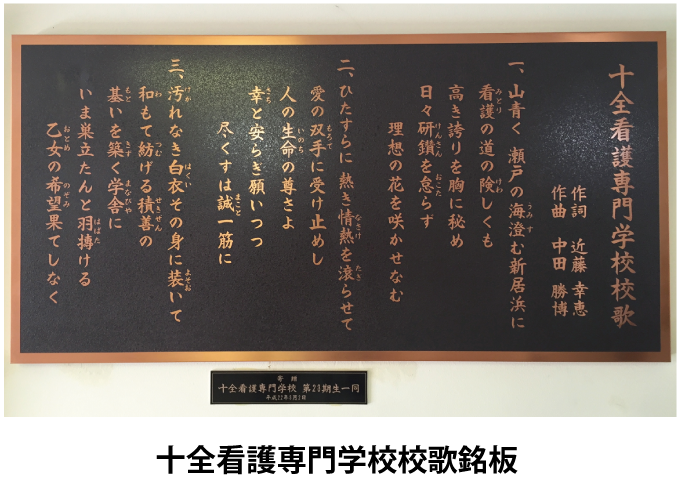 十全看護専門学校校歌
作詞 近藤 幸恵
作曲 中田 勝博
一、山青く 瀬戸の海澄む新居浜に
看護の道の険しくも
高き誇りを胸に秘め
日々研鑽を怠らず
理想の花を咲かせなむ
二、ひたすらに 熱き情熱を滾らせて
愛の双手に受け止めし
人の生命の尊さよ
幸と安らぎ願いつつ
尽くすは誠一筋に
三、汚れなき白衣その身に装いて
和もて紡げる積善の
基いを築く学舎に
いま巣立たんと羽搏ける
乙女の希望果てしなく
寄贈
十全看護専門学校 第20期生一同
十全看護専門学校校歌銘板